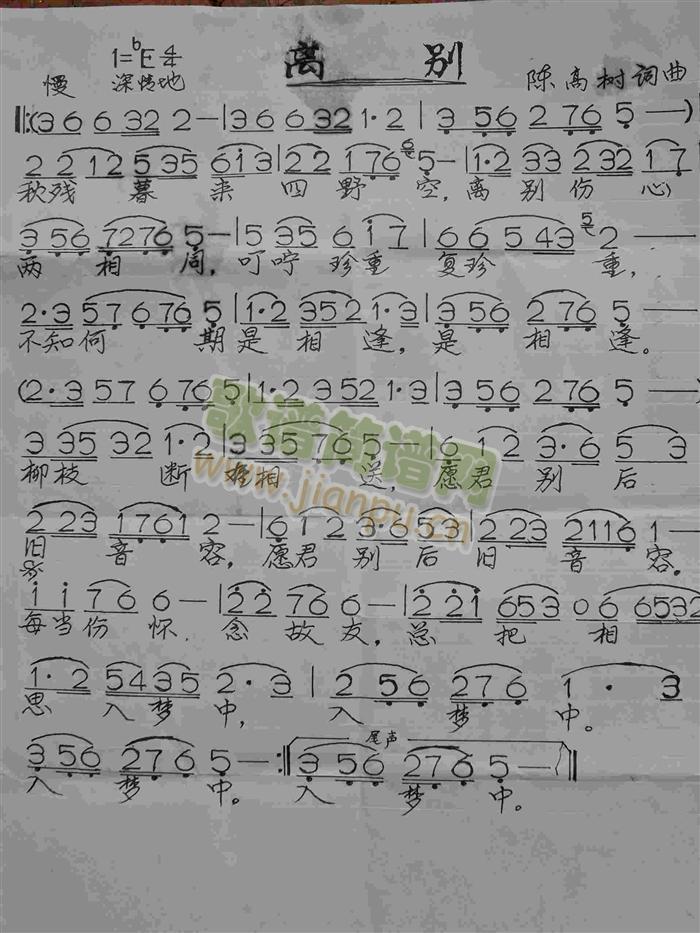 离 别
1=bE 4/4
慢 深情地 陈高树词曲
‖:(3 6 6 32 2 — | 3 6 6 32 1·2 | 3 56 2 76 5 — )
2 2 12 535 613 | 22 176 5 — | 1·2 33 232 17
秋残 暮 来 四 野 空, 离 别 伤 心
356 7276 5 — | 5 35 6 17 | 66 543 2 —
两 相 周, 叮咛 珍重 复珍 重,
2·3 57 6 76 5 | 1·2 352 1·3 | 3 56 276 5 —
不知何 期是 相 逢, 是 相 逢。
(2·3 57 6 765 | 1·2 352 1·3 | 3 56 2 76 5 — )
3 35 32 1·2 | 335 76 5 — | 6 12 3·6 5 3
柳枝 断 相 送, 愿君 别 后
223 1761 2 — | 612 3·6 53 | 223 2116 1 —
旧 音 容, 愿君 别 后 旧 音 容。
1176 6 — | 22 76 6 — | 2 21 653 06 6532
每当伤 怀 念 故 友, 总 把 相
1·2 5435 2·3 | 2 56 276 1·3
思 入梦 中, 入 梦 中。
尾声
3 56 276 5 — :‖ 3 56 276 5 — ‖
入 梦 中。 入 梦 中。
歌谱简谱网
www.jianpu.cn